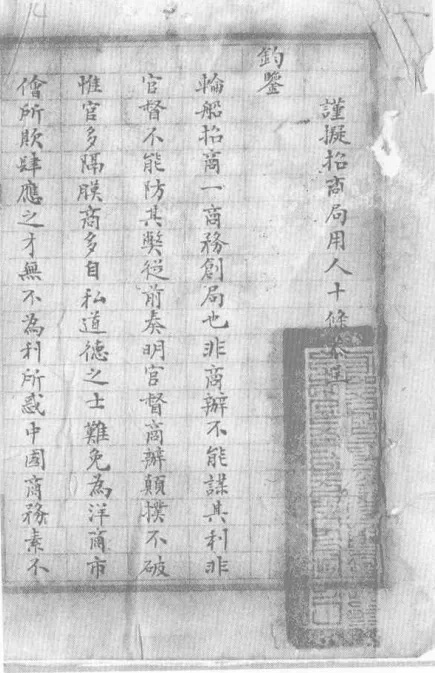 謹擬招商局用人十條恭呈
鈞鑒
輪船招商一商務創局也非商辦不能謀其利非
官督不能防其弊從前奏明官督商辦顛撲不破
惟官多隔膜商多自私道德之士難免為洋商市
儈所欺肆應之才無不為利所惑中國商務素不